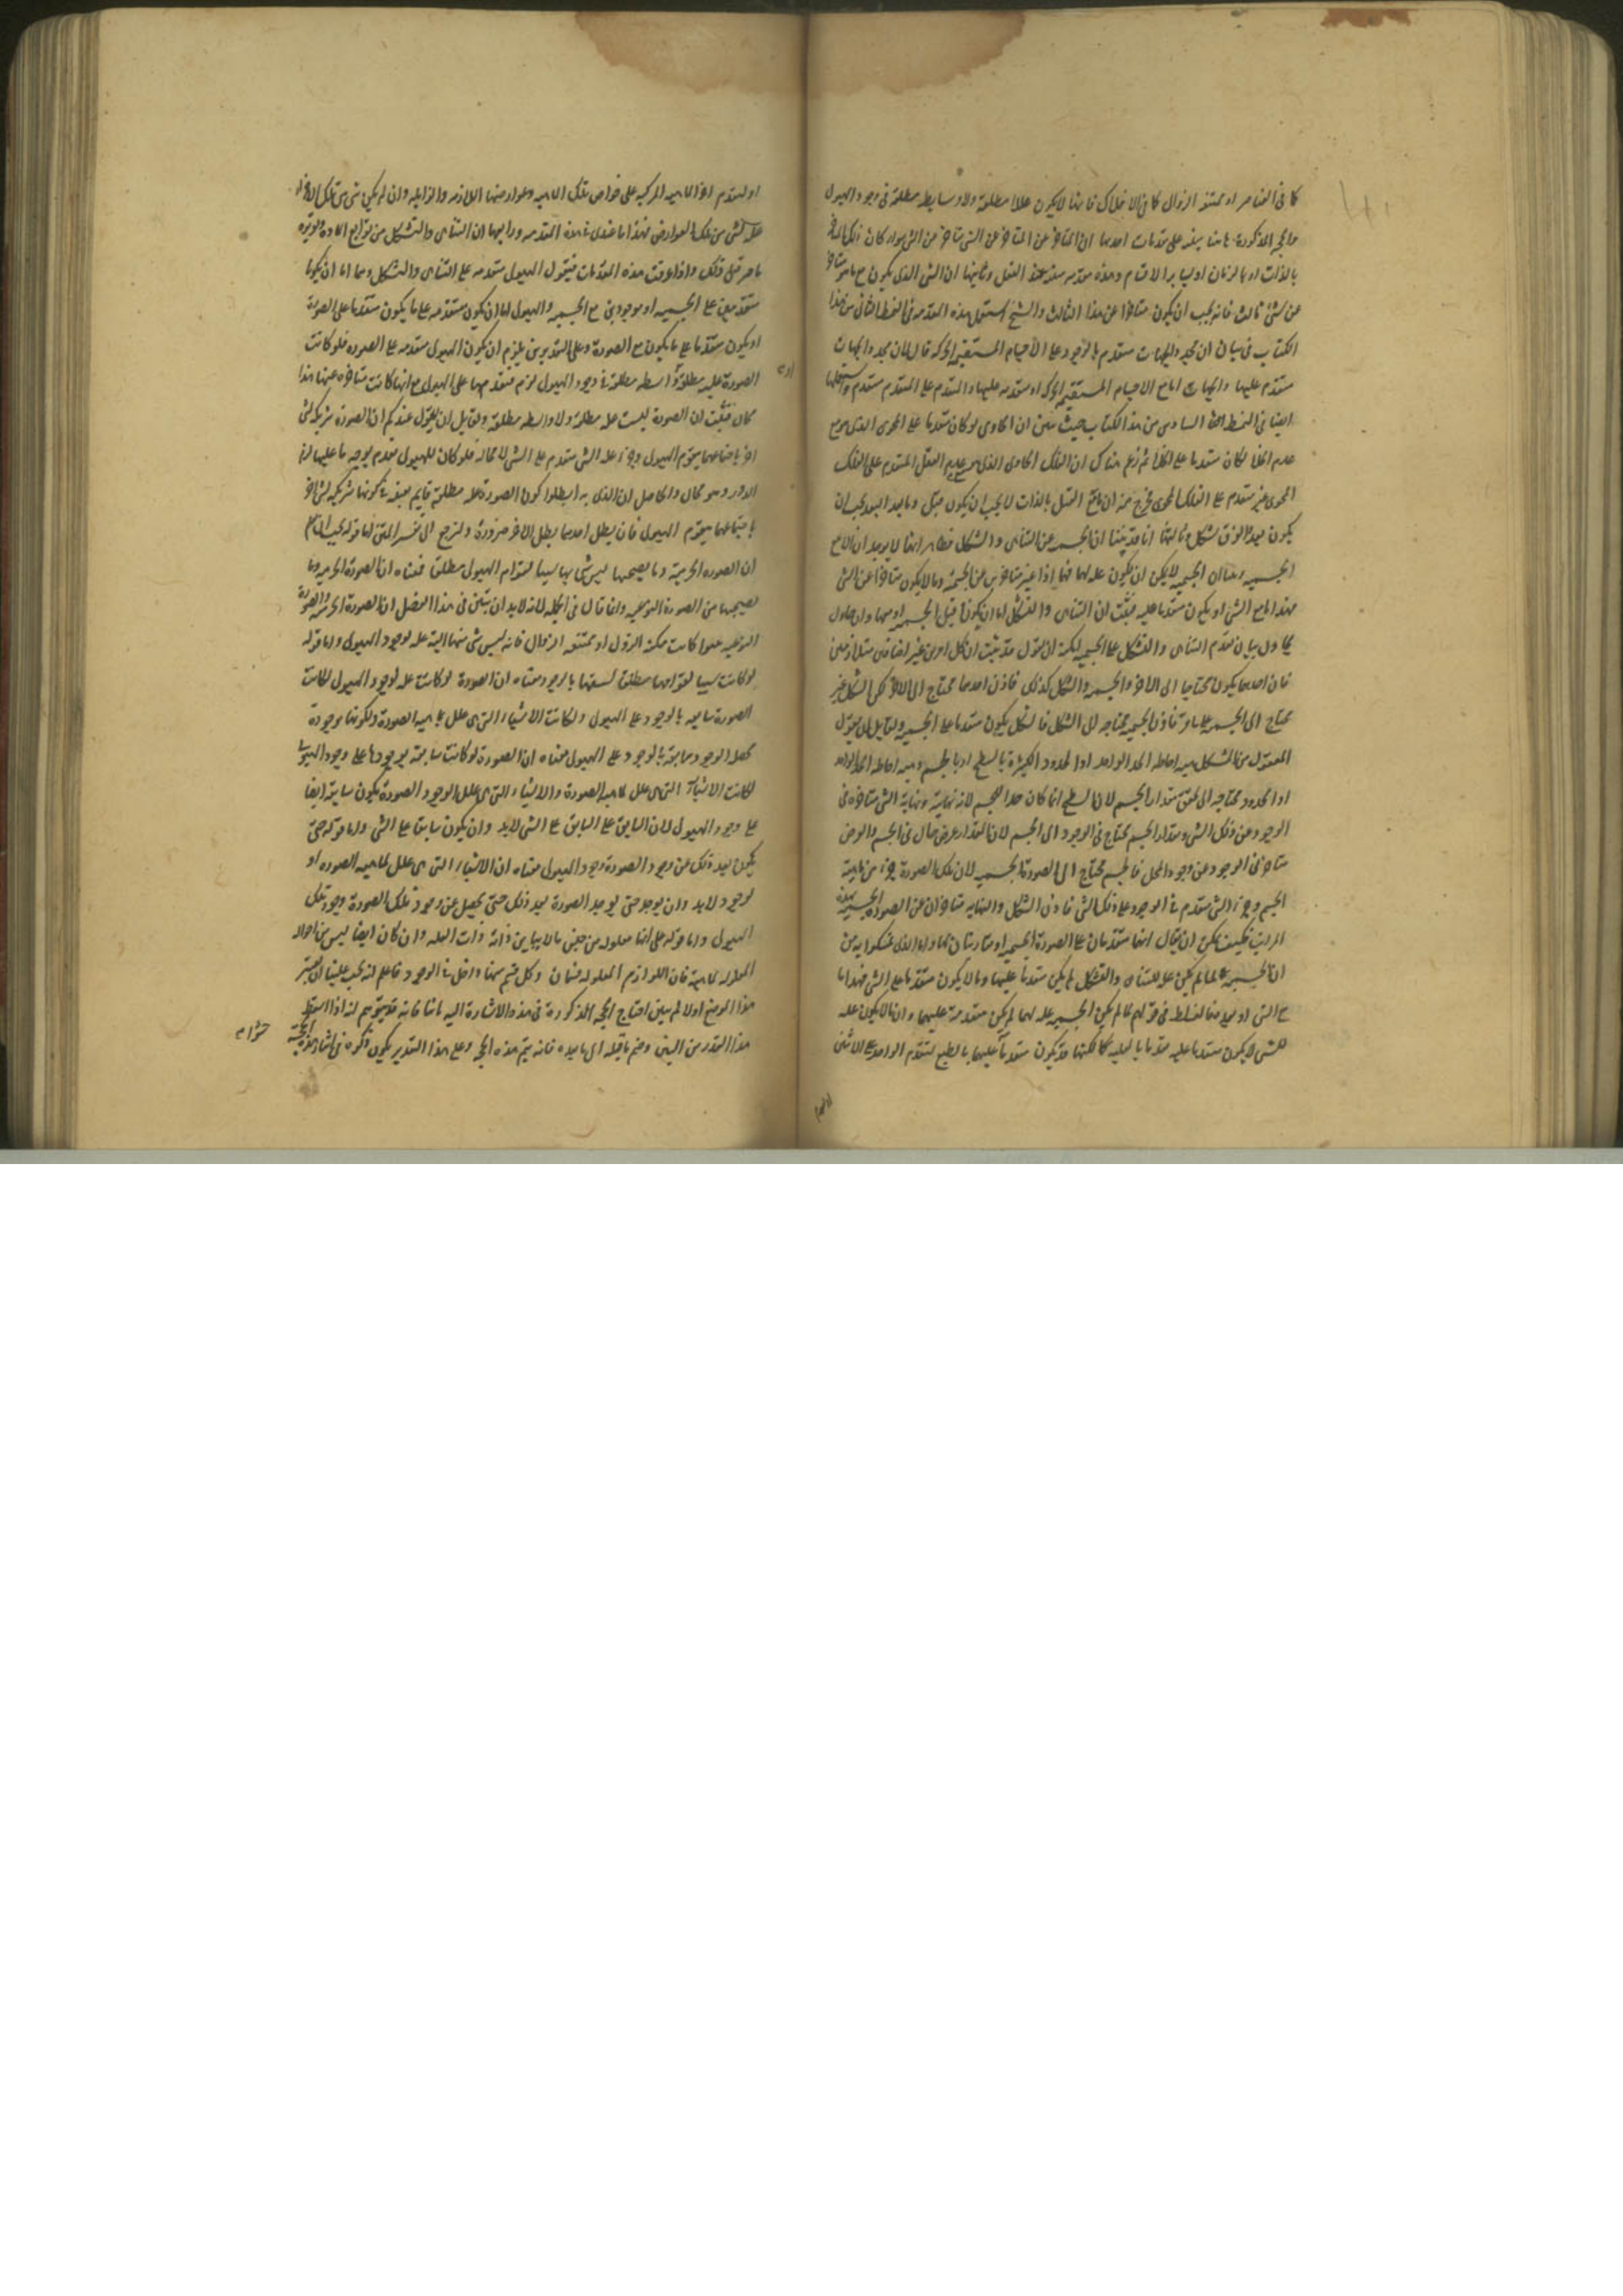 كما فى العناصر او ممتنعة الزوال كما فى الافلاك فانها لا يكون عللا مطلقة ولا وسايط مطلقة فى وجود الهيولى
والحجة المذكورة هاهنا مبنية على مقدمات احدها ان المتاخر عن المتاخر عن الشى متاخر عن الشى سواء كان ذلك التاخر
بالذات او بالزمان او لسايرالاقسام وهذه مقدمة بينة عند العقل وثانيها ان الشى الذى يكون مع ما هو متاخر
عن شى ثالث فانه يجب ان يكون متاخرا عن هذا الثالث والشيخ استعمل هذه المقدمة فى النمط الثانى من هذا
الكتاب فى بيان ان محدد الجهات متقدم بالوجود على الاجسام المستقيمة الحركة قال لان محدد الجهات
متقدم عليها والجهات اما مع الاجسام المستقيمة الحركة او متقدمة عليها والمتقدم على المتقدم متقدم واستعملها
ايضا فى النمط السادس من هذا الكتاب حيث بين ان الحاوى لو كان متقدما على المحوى الذى هو مع
عدم الخلا لكان متقدما على الخلا ثم زعم هناك ان الفلك الحاوى الذى هو مع العقل المتقدم على الفلك
المحوى غير متقدم على الفلك المحوى فخرج منه ان ما مع القبل بالذات لا يجب ان يكون قبل وما مع البعد يجب ان
يكون بعد والفرق مشكل وثالثها انا قد بينا ان الجسمية عن التناهى والتشكل فظاهر انها لا يوجد ان الا مع
الجسمية وبينا ان الجسمية لا يمكن ان يكون علة لهما فهما اذا غير متاخرين عن الجسمية وما لا يكون متاخرا عن الشى
فهو اما مع الشى او يكون متقدما عليه فثبت ان التناهى والتشكل اما ان يكونا قبل الجسمية او معها وان حاول
محاول بيان تقدم التناهى والتشكل على الجسمية امكنه ان يقول قد ثبت ان كل امرين غير اضافيين متلازمين
فان احدهما يكون محتاجا الى الاخر والجسمية والشكل كذلك فاذن احدهما محتاج الى الاخر لكن الشكل غير
محتاج الى الجسمية على ما مر فاذن الجسمية محتاجة الى الشكل فالشكل يكون متقدما على الجسمية ولقايل ان يقول
المعقول من الشكل هيئة احاطة الحد الواحد او الحدود الكثيرة بالسطح او بالجسم وهيئة احاطة الحد الواحد
او الحدود محتاجة الى تحقق مقدار الجسم لان السطح انما كان حدا للجسم لانه نهايته ونهاية الشى متاخرة فى
الوجود عن ذلك الشى ومقدار الجسم يحتاج فى الوجود الى الجسم لان المقدار عرض حال فى الجسم والعرض
متاخر فى الوجود عن وجود المحل فالجسم محتاج الى الصورة الجسمية لان تلك الصورة جزء من ماهية
الجسم وجزء الشى متقدم فى الوجود على ذلك الشى فاذن الشكل والنهاية متاخران عن الصورة الجسمية بهذه
المراتب فكيف يمكن ان يقال انهما متقدمان على الصورة الجسمية او مقارنان لها واما الذى تمسكوا به من
ان الجسمية لما لم يكن علة للتناهى والتشكل لم يكن متقدما عليهما وما لا يكون متقدما على الشى فهو اما
مع الشى او بعده فالغلط فى قولهم لما لم يكن الجسمية علة لهما لم يكن متقدمة عليهما وان ما لا يكون علة
للشى لا يكون متقدما عليه تقدما بالعلية كالكنها قد يكون متقدما عليهما بالطبع لتقدم الواحد على الاثنين
او لتقدم اجزا الماهية المركبة على خواص تلك الماهية وعوارضها اللازمة والزايلة وان لم يكن شى من تلك الاجزاء
علة لشى من تلك العوارض فهذا ما عندى فى هذه المقدمة ورابعها ان التناهى والتشكل من توابع المادة وتقريره
ما مر قبل ذلك واذا عرفت هذه المقدمات فنقول الهيولى متقدمة على التناهى والتشكل وهما اما ان يكونا
متقدمين على الجسمية او موجودين مع الجسمية فالهيولى اما ان يكون متقدمة على ما يكون متقدما على الصورة
او يكون متقدما على ما يكون مع الصورة وعلى التقديرين يلزم ان يكون الهيولى متقدمة على الصورة فلو كانت
الصورة علة مطلقة او واسطة مطلقة فى وجود الهيولى لزم تقدمها على الهيولى مع انها كانت متاخرة عنها هذا
محال فثبت ان الصورة ليست علة مطلقة ولا واسطة مطلقة ولقايل ان يقول عندكم ان الصورة شريكة لشى
اخر باجتماعهما يتقوم الهيولى وجزء علة الشى متقدم على الشى لا محالة فلو كان للهيولى تقدم بوجه ما عليها لزم
الدور وهو محال والحاصل ان الذى به ابطلوا كون الصورة علة مطلقة قايم بعينه فى كونها شريكة لشى اخر
باجتماعهما يتقوم الهيولى فان بطل احدهما بطل الاخر ضرورة ولنرجع الى تفسير المتن اما قوله يجب ان تعلم
ان الصورة الجرمية وما يصحبها ليس شى منها سببا لقوام الهيولى مطلقا فمعناه ان الصورة الجرمية وما
يصحبها من الصورة النوعية وانما قال فى الجملة لانه لابد ان يتبين فى هذا الفصل ان الصورة الجرمية والصورة
النوعية سواء كانت ممكنة الزوال او ممتنعة الزوال فانه ليس شى منها البتة علة لوجود الهيولى واما قوله
لو كانت سببا لقوامها مطلقا لسبقتها بالوجود معناه ان الصورة لو كانت علة لوجود الهيولى لكانت
الصورة سابقة بالوجود على الهيولى ولكانت الاشياء التى هى علل لماهية الصورة ولكونها موجودة
محصلة الوجود سابقة بالوجود على الهيولى معناه ان الصورة لو كانت سابقة بوجودها على وجود الهيولى
لكانت الاشياء التى هى علل لماهية الصورة والاشياء التى هى علل لوجود الصورة يكون سابقة ايضا
على وجود الهيولى لان السابق على السابق على الشى لابد وان يكون سابقا على الشى واما قوله حتى
يكون بعد ذلك عن وجود الصورة وجود الهيولى معناه ان الاشياء التى هى علل لماهية الصورة او
لوجود لابد وان يوجد حتى يوجد الصورة بعد ذلك حتى يحصل عن وجود تلك الصورة وجود تلك
الهيولى واما قوله على انها معلولة من جنس ما لا يباين ذاته ذات العلة وان كان ايضا ليس من احوال
المعلولة لماهيته فان اللوازم المعلولة قسمان وكل قسم منها داخل فى الوجود فاعلم انه يجب علينا ان نفسر
هذا الموضع اولا ثم نبين احتياج الحجة المذكورة فى هذه الاشارة اليه ثانيا فانه قد يتوهم انه اذا اسقط
هذا القدر من البين وضم ما قبله الى ما بعده فانه يتم هذه الحجة وعلى هذا التقدير يكون ذكره فى اثناء هذه الحجة
حشوا